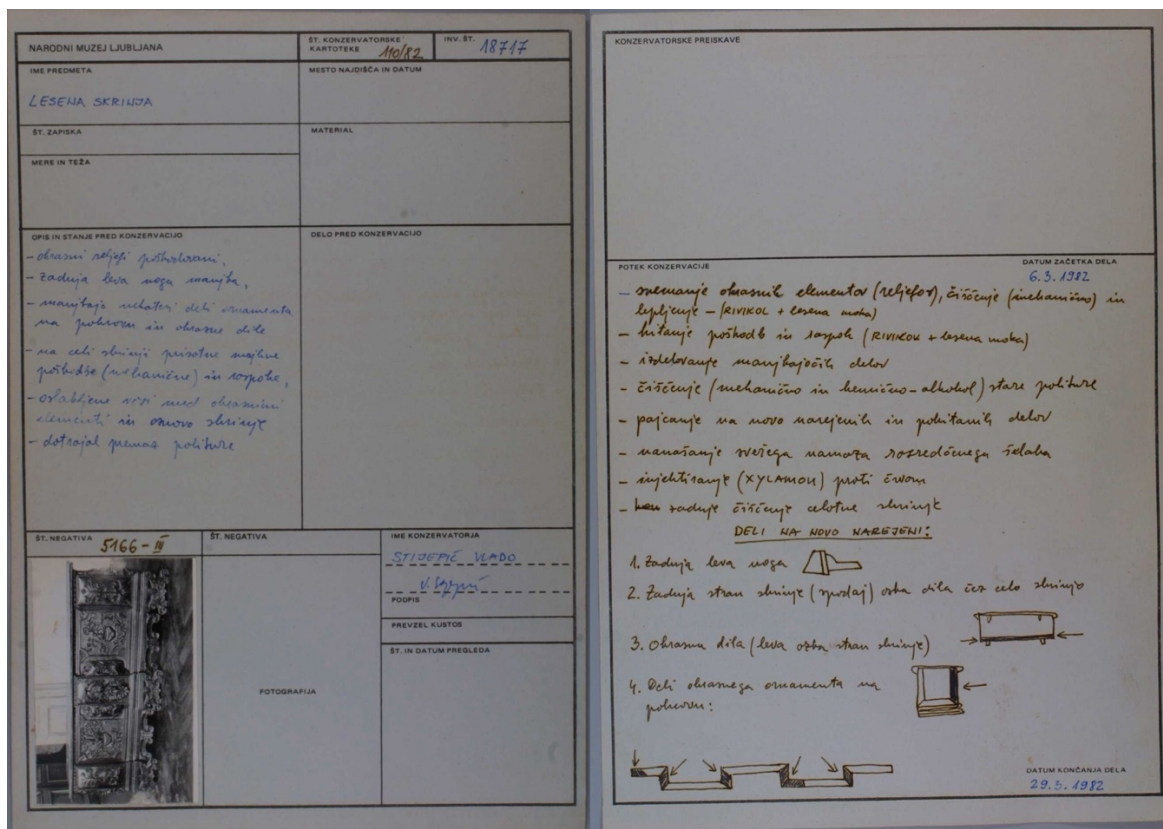 NARODNI MUZEJ LJUBLJANA
ŠT. KONZERVATORSKE
KARTOTEKE 110/82
INV. ŠT. 18717
IME PREDMETA
LESENA SKRINJA
MESTO NAJDIŠČA IN DATUM
ŠT. ZAPISKA
MATERIAL
MERE IN TEŽA
OPIS IN STANJE PRED KONZERVACIJO
- okrasni reljefi poškodovani,
- zadnja leva noga manjka,
- manjkajo nekateri deli ornamenta
na pokrovu in okrasne dile
- na celi skrinji prisotne majhne
poškodbe (mehanične) in razpoke,
- oslabljene vezi med okrasnimi
elementi in osnovo skrinje
- dotrajal premaz politure
DELO PRED KONZERVACIJO
ŠT. NEGATIVA 5166-IV
ŠT. NEGATIVA
FOTOGRAFIJA
IME KONZERVATORJA
STIJEPIČ VLADO
PODPIS
PREVZEL KUSTOS
ŠT. IN DATUM PREGLEDA
KONZERVATORSKE PREISKAVE
POTEK KONZERVACIJE
DATUM ZAČETKA DELA
6.3.1982
- snemanje okrasnih elementov (reljefov), čiščenje (mehanično) in
lepljenje - (RIVIKOL + lesena moka)
- kitanje poškodb in razpok (RIVIKOL + lesena moka)
- izdelovanje manjkajočih delov
- čiščenje (mehanično in kemično - alkohol) stare politure
- pajcanje na novo narejenih in pokitanih delov
- nanašanje svežega namaza razredčenega šelaka
- injektiranje (XYLAMON) proti črvom
- zadnje čiščenje celotne skrinje
DELI NA NOVO NAREJENI:
1. Zadnja leva noga
2. Zadnja stran skrinje (spodaj) ozka dila čez celo skrinjo
3. Okrasna dila (leva ožja stran skrinje)
4. Deli okrasnega ornamenta na
pokrovu:
DATUM KONČANJA DELA
29.3.1982